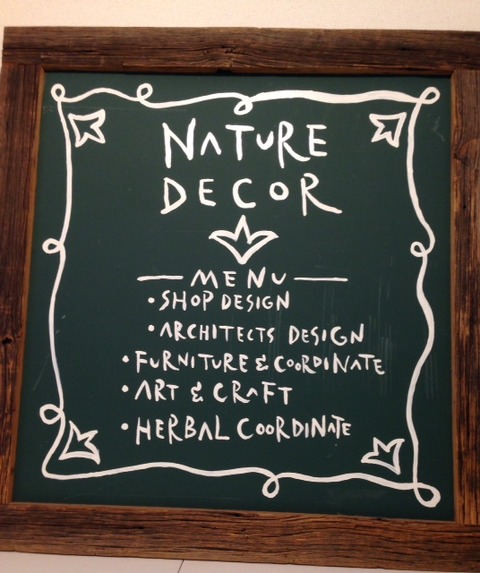 NATURE
DECOR
MENU
• SHOP DESIGN
• ARCHITECTS DESIGN
• FURNITURE & COORDINATE
• ART & CRAFT
• HERBAL COORDINATE